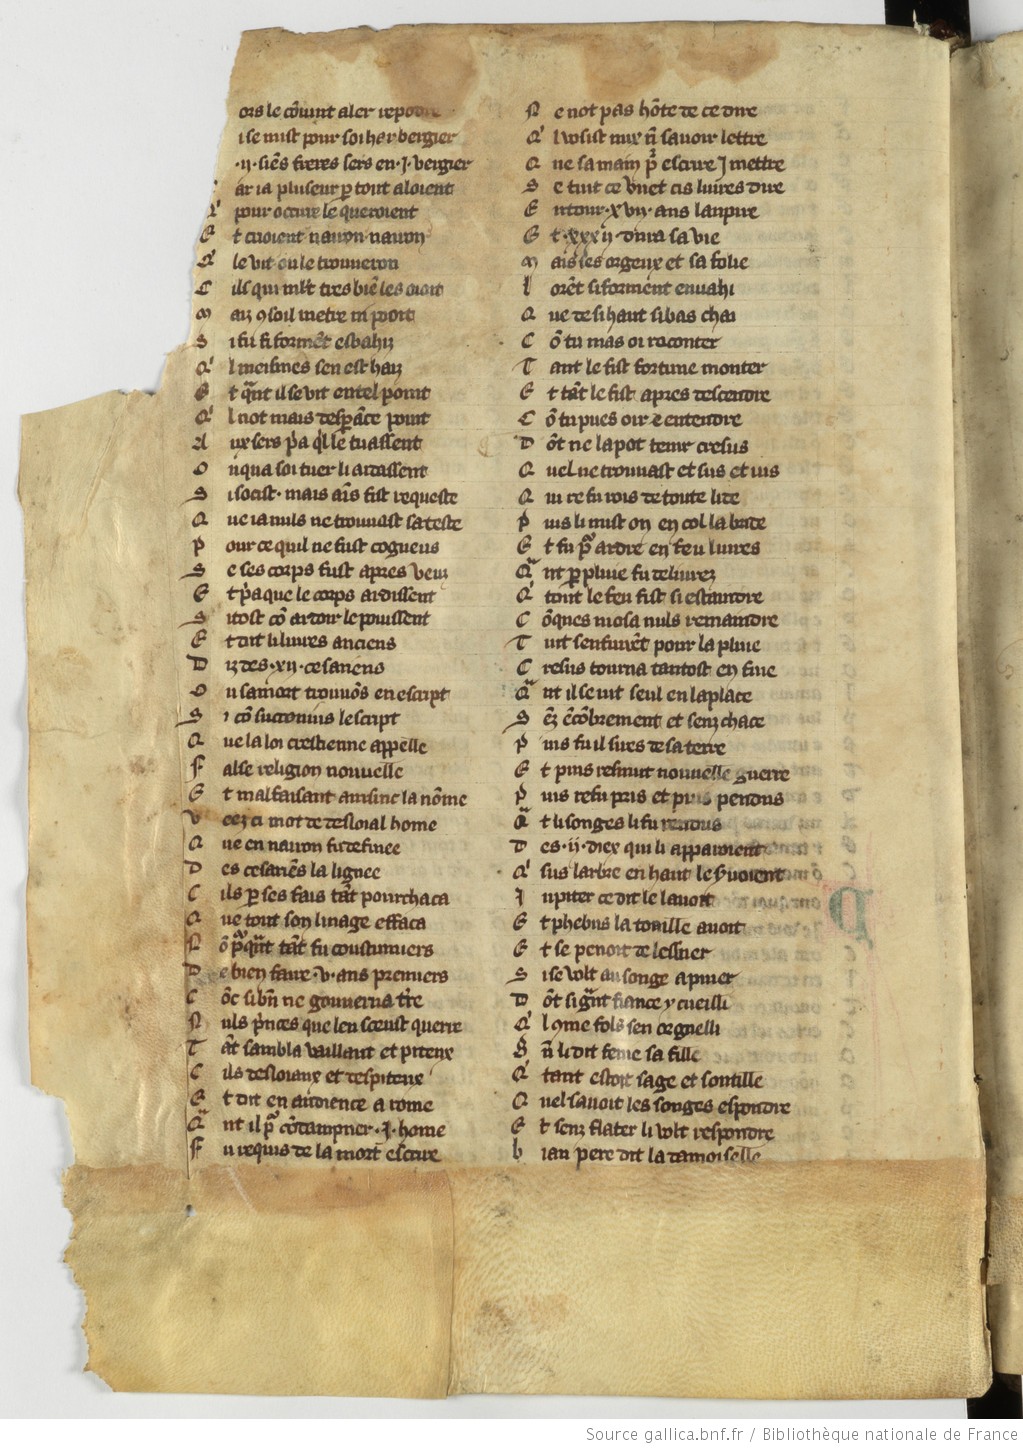 ors le cōuint aler repodre
i se mist pour soi herbergier
·ij· siēs freres sers en ·j· vergier
ar ia pluseur p tout aloient
Q' pour occirre le queroient
E t crioient nauon nauon
Q' le vit ou le trouueron
C ils qui mlt tres biē les oioit
M ais 9soil metre ni pooit
S i fu si formēt esbahiz
Q' l meismes sen est haiz
E t qnt il se vit en tel point
Q' l not mais desperāce point
A ux sers pa ql le tuassent
O u qua soi tuer li aidassent
S i socist · mais ains fist requeste
Q ue ia nuls ne trouuast sa teste
P our ce quil ne fust cogneus
S e ses corps fust apres veuz
E t pa que le corps ardissent
S itost cō ardoir le pouissent
E t dit li liures anciens
D iz des ·xij· cesariens
O u sa mort trouuōs en escript
S i cō suctonius lescript
Q ue la loi crestienne appelle
F alse religion nouuelle
E t malfaisant ainsinc la nōme
V eez ci mot de desloial home
Q ue en nauon fu definee
D es cesariens la lignee
C ils p ses fais tāt pourchaca
Q ue tout son linage effaca
N ō pqnt tāt fu coustumiers
D e bien faire ·v· ans premiers
C ōc si bn ne gouuerna tre
N uls princes que len sceust querre
T āt sambla vaillant et piteux
C ils desloiaux et despiteux
E t dit en audience a rome
Q nt il p cōdampner ·j· home
F u requis de la mort escrire
N e not pas hōte de ce dire
Q' l vosist mix ñ sauoir lettre
Q ue sa main pr escrire j mettre
S e tint ce vuet cis liures dire
E ntour ·xvij· ans lanpire
E t ·xxxij· dura sa vie
M ais ses orgeux et sa folie
L orēt si forment enuahi
Q ue de si haut si bas chai
C ō tu mas oi raconter
T ant le fist fortune monter
E t tāt le fist apres descendre
C ō tu pues oir & entendre
D ōt ne la pot tenir cresus
Q uel ne trouuast et sus et ius
Q ui re fu rois de toute lide
P uis li mist on en col la bride
E t fu pr ardre en feu liures
Q nt p pluie fu deliurez
Q' tout le feu fist si estaindre
C ōques niosa nuls remaindre
T uit senfuirēt pour la pluie
C resus tourna tantost en fuie
Q nt il se uit seul en la place
S ēz ēcōbrement et senz chace
P uis fu il sires de sa terre
E t puis resmut nouuelle guerre
P uis refu pris et puis pendus
Q t li songes li fu rendus
D es ·ij· diex qui li apparoient
Q' sus larbre en haut le suoient
J upiter ce dit le lauoit
E t phebus la touaille auoit
E t se penoit de lessuer
S i se volt au songe apuier
D ōt si gnt fiance y cueilli
Q' l 9me fols sen orguelli
B ñ li dit feme sa fille
Q' tant estoit sage et soutille
Q uel sauoit les songes espondre
E t senz flater li volt respondre
b iau pere dit la damoiselle